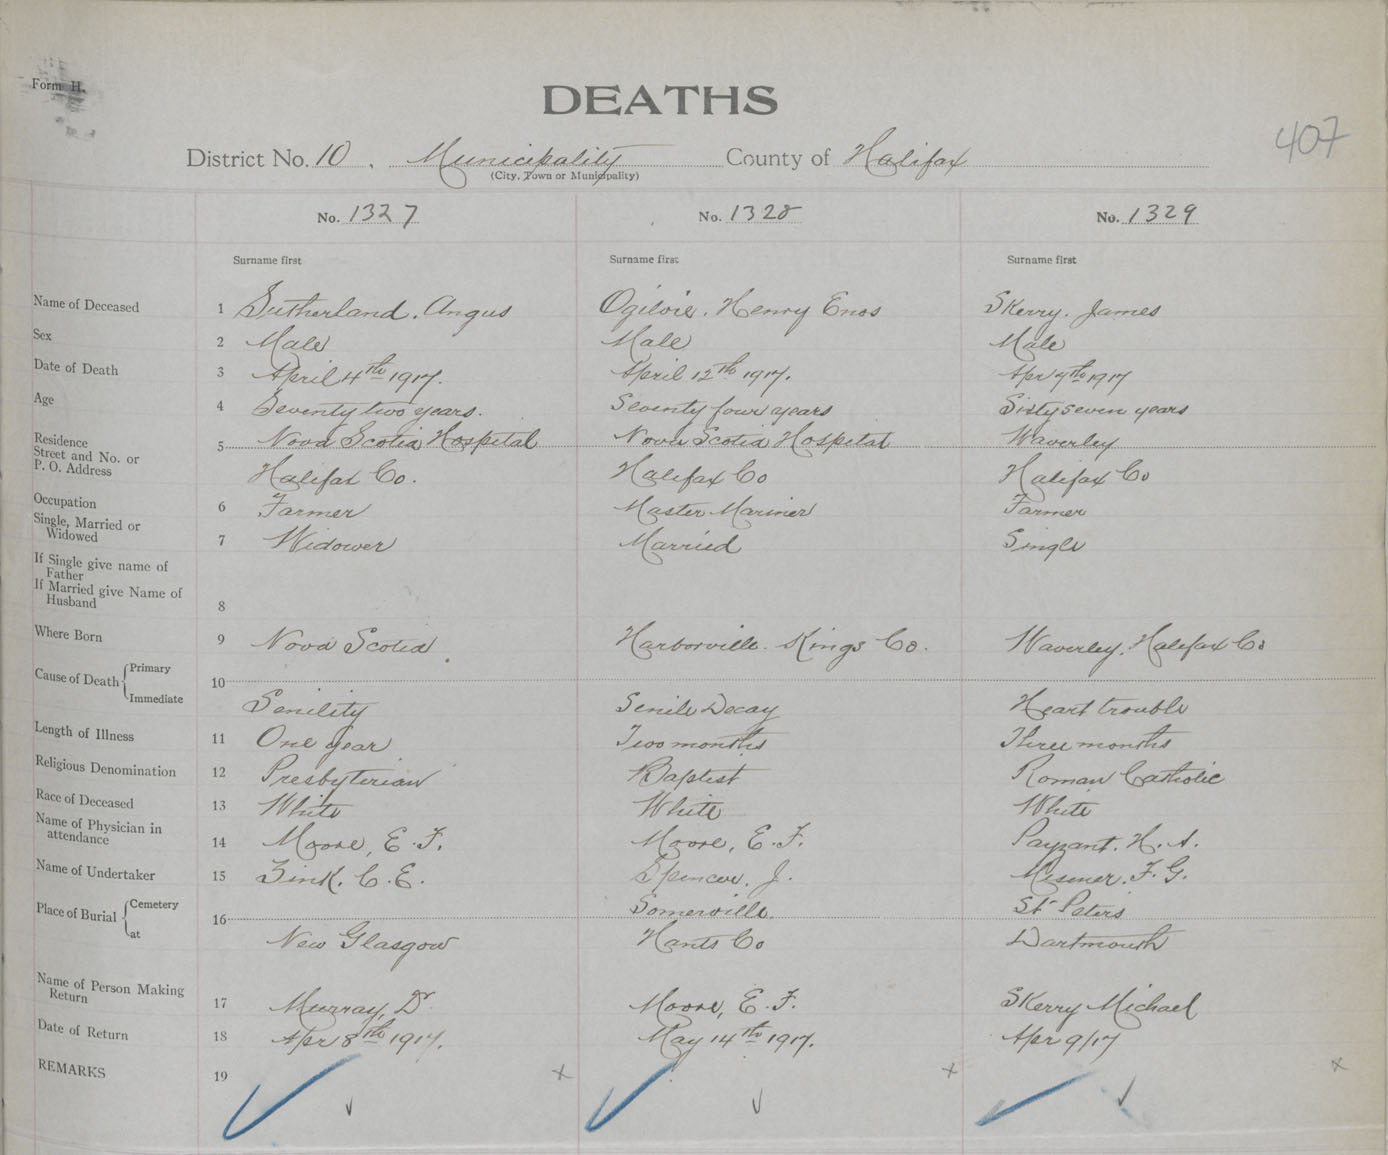 Form H.
DEATHS
407
District No. 10. Municipality County of Halifax
(City, Town or Municipality)
No. 1327 No. 1328 No. 1329
Surname first Surname first Surname first
Name of Deceased 1 Sutherland. Angus Ogilvie. Henry Enos Skerry. James
Sex 2 Male Male Male
Date of Death 3 April 4th 1917. April 12th 1917. Apr 9th 1917
Age 4 Seventy two years. Seventy four years Sixty seven years
Residence Street and No. or P. O. Address 5 Nova Scotia Hospital Nova Scotia Hospital Waverley
Halifax Co. Halifax Co Halifax Co
Occupation 6 Farmer Master Mariner Farmer
Single, Married or Widowed 7 Widower Married Single
If Single give name of Father
If Married give Name of Husband 8
Where Born 9 Nova Scotia. Harborville. Kings Co. Waverley. Halifax Co
Cause of Death Primary 10
Immediate Senility Senile Decay Heart trouble
Length of Illness 11 One year Two months Three months
Religious Denomination 12 Presbyterian Baptist Roman Catholic
Race of Deceased 13 White White White
Name of Physician in attendance 14 Moore, E. F. Moore, E. F. Payzant. H. A.
Name of Undertaker 15 Zink. C. E. Spencer. J. Misener. F. G.
Place of Burial Cemetery 16 Somerville. St Peters
at New Glasgow Hants Co Dartmouth
Name of Person Making Return 17 Murray, Dr Moore, E. F. Skerry Michael
Date of Return 18 Apr 8th 1917. May 14th 1917. Apr 9/17
REMARKS 19 x x x